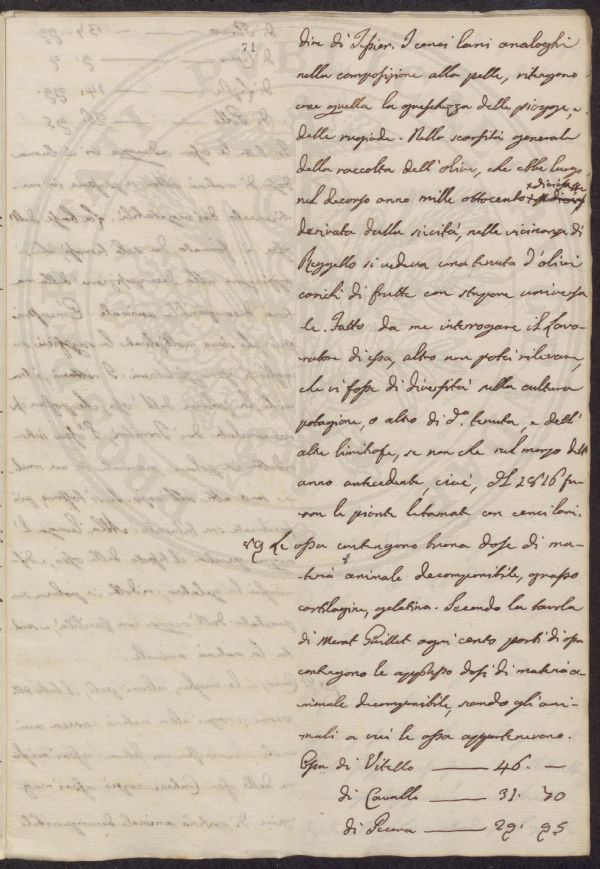 71
dire di Tessier. I cenci lani analoghi
nella composizione alla pelle, ritengono
come quella la freschezza delle piogge, e
delle rugiade. Nella scarsità generale
della raccolta dell'olive, che ebbe luogo
nel decorso anno mille ottocento diciasette
derivata dalla siccità, nelle vicinanze di
Reggello si vedeva una tenuta d'olivi
carichi di frutte con stupore universa
le. Fatto da me interrogare il Lavo-
ratore di essa, altro non potei rilevare,
che vi fosse di diversità nella cultura
potagione, o altro di d.a tenuta, e dell'
altre limitrofe, se non che nel marzo dell'
anno antecedente, cioè, del 1816 fu-
ron le piante letamate con cenci lani.
59 Le ossa contengono buona dose di ma-
teria animale decomponibile, grasso
cartilagine, gelatina. Secondo la tavola
di Merat Guillot ogni cento parti di ossa
contengono le appresso dosi di materia a-
nimale decomponibile, secondo gli ani-
mali a cui le ossa appartenevano.
Ossa di Vitello —— 46. —
di Cavallo —— 31. 70
di Pecora —— 29. 95